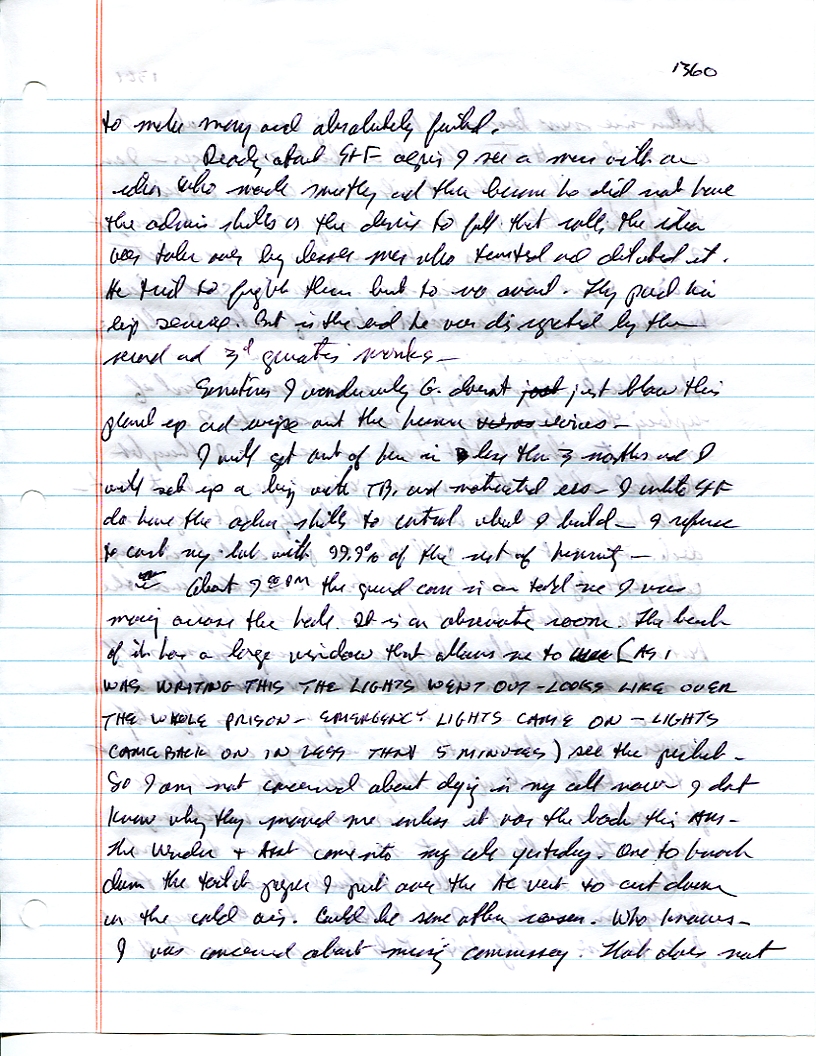 1360
to make money and absolutely failed.
Reading about S+F again I see a man with an
idea who made mostly and then because he did not have
the admin skills or the desire to fill that role, the idea
was taken over by lesser men who twisted and diluted it.
He tried to fight them but to no avail. They paid him
lip service. But in the end he was disregarded by the
second and 3rd generation monks—
Sometimes I wonder why G. doesnt just blow this
planet up and wipe out the human virus—
I will get out of here in less than 3 months and I
will set up a big with TB, and motivated exs— I unlike S+F
do have the admin skills to control what I build— I refuse
to cast my lot with 99.9% of the rest of humanity—
About 7 00 PM the guard came in an told me I was
moving across the hall. It is an observation room. The back
of it has a large window that allows me to (AS I
WAS WRITING THIS THE LIGHTS WENT OUT - LOOKS LIKE OVER
THE WHOLE PRISON - EMERGENCY LIGHTS CAME ON - LIGHTS
CAME BACK ON IN LESS THAN 5 MINUTES) see the picket—
So I am not concerned about dying in my cell now. I dont
know why they moved me unless it was the back this AM—
The Warden + Asst came into my cell yesterday. One to knock
down the toilet paper I put over the AC vent to cut down
on the cold air. Could be some other reason. Who knows—
I was concerned about missing commissary. That does not